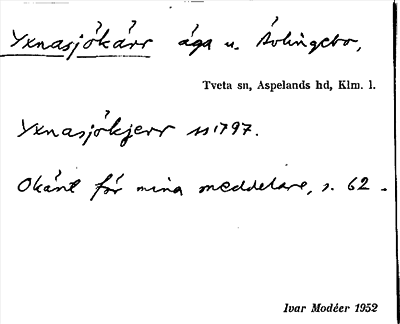 Yxnasjökärr äga u. Åvlingebo,
Tveta sn, Aspelands hd, Klm. l.
Yxnasjökjerr 1797.
Okänt för mina meddelare, s. 62.
Ivar Modéer 1952